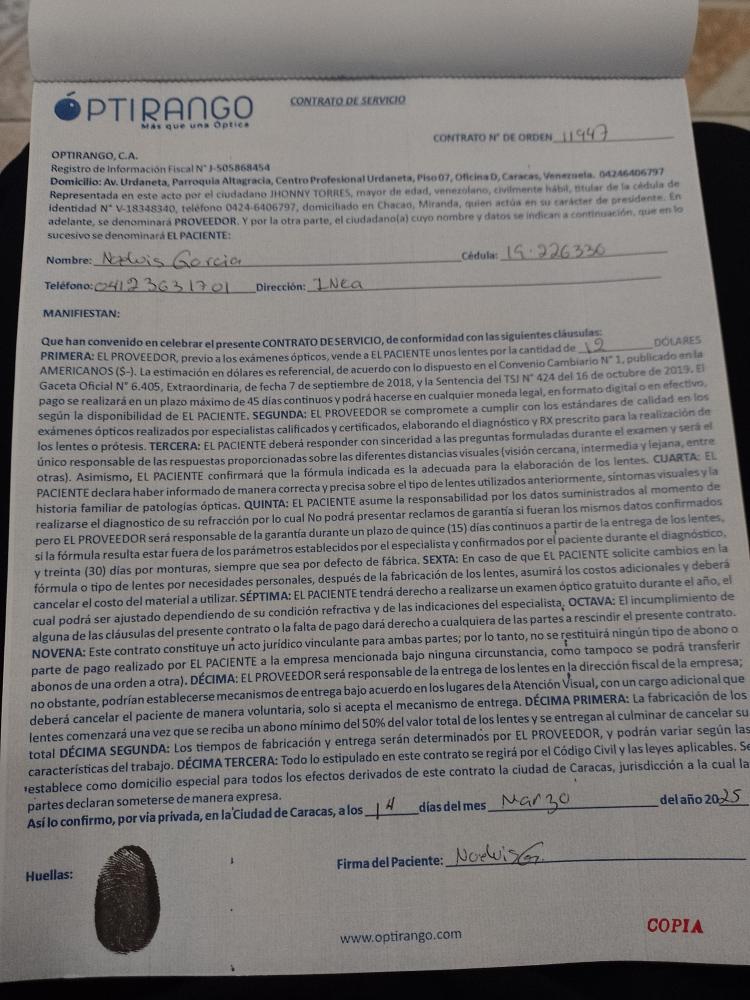 ÓPTIRANGO
Más que una Óptica
CONTRATO DE SERVICIO
CONTRATO N° DE ORDEN 11947
OPTIRANGO, C.A.
Registro de Información Fiscal N° J-505868454
Domicilio: Av. Urdaneta, Parroquia Altagracia, Centro Profesional Urdaneta, Piso 07, Oficina D, Caracas, Venezuela. 04246406797
Representada en este acto por el ciudadano JHONNY TORRES, mayor de edad, venezolano, civilmente hábil, titular de la cédula de
identidad N° V-18348340, teléfono 0424-6406797, domiciliado en Chacao, Miranda, quien actúa en su carácter de presidente. En
adelante, se denominará PROVEEDOR. Y por la otra parte, el ciudadano(a) cuyo nombre y datos se indican a continuación, que en lo
sucesivo se denominará EL PACIENTE:
Nombre: Noelvis Garcia Cédula: 19.226330
Teléfono: 04123631701 Dirección: INea
MANIFIESTAN:
Que han convenido en celebrar el presente CONTRATO DE SERVICIO, de conformidad con las siguientes cláusulas:
PRIMERA: EL PROVEEDOR, previo a los exámenes ópticos, vende a EL PACIENTE unos lentes por la cantidad de 12 DÓLARES
AMERICANOS ($-). La estimación en dólares es referencial, de acuerdo con lo dispuesto en el Convenio Cambiario N° 1, publicado en la
Gaceta Oficial N° 6.405, Extraordinaria, de fecha 7 de septiembre de 2018, y la Sentencia del TSJ N° 424 del 16 de octubre de 2019. El
pago se realizará en un plazo máximo de 45 días continuos y podrá hacerse en cualquier moneda legal, en formato digital o en efectivo,
según la disponibilidad de EL PACIENTE. SEGUNDA: EL PROVEEDOR se compromete a cumplir con los estándares de calidad en los
exámenes ópticos realizados por especialistas calificados y certificados, elaborando el diagnóstico y RX prescrito para la realización de
los lentes o prótesis. TERCERA: EL PACIENTE deberá responder con sinceridad a las preguntas formuladas durante el examen y será el
único responsable de las respuestas proporcionadas sobre las diferentes distancias visuales (visión cercana, intermedia y lejana, entre
otras). Asimismo, EL PACIENTE confirmará que la fórmula indicada es la adecuada para la elaboración de los lentes. CUARTA: EL
PACIENTE declara haber informado de manera correcta y precisa sobre el tipo de lentes utilizados anteriormente, síntomas visuales y la
historia familiar de patologías ópticas. QUINTA: EL PACIENTE asume la responsabilidad por los datos suministrados al momento de
realizarse el diagnostico de su refracción por lo cual No podrá presentar reclamos de garantía si fueran los mismos datos confirmados
pero EL PROVEEDOR será responsable de la garantía durante un plazo de quince (15) días continuos a partir de la entrega de los lentes,
si la fórmula resulta estar fuera de los parámetros establecidos por el especialista y confirmados por el paciente durante el diagnóstico,
y treinta (30) días por monturas, siempre que sea por defecto de fábrica. SEXTA: En caso de que EL PACIENTE solicite cambios en la
fórmula o tipo de lentes por necesidades personales, después de la fabricación de los lentes, asumirá los costos adicionales y deberá
cancelar el costo del material a utilizar. SÉPTIMA: EL PACIENTE tendrá derecho a realizarse un examen óptico gratuito durante el año, el
cual podrá ser ajustado dependiendo de su condición refractiva y de las indicaciones del especialista. OCTAVA: El incumplimiento de
alguna de las cláusulas del presente contrato o la falta de pago dará derecho a cualquiera de las partes a rescindir el presente contrato.
NOVENA: Este contrato constituye un acto jurídico vinculante para ambas partes; por lo tanto, no se restituirá ningún tipo de abono o
parte de pago realizado por EL PACIENTE a la empresa mencionada bajo ninguna circunstancia, como tampoco se podrá transferir
abonos de una orden a otra). DÉCIMA: EL PROVEEDOR será responsable de la entrega de los lentes en la dirección fiscal de la empresa;
no obstante, podrían establecerse mecanismos de entrega bajo acuerdo en los lugares de la Atención Visual, con un cargo adicional que
deberá cancelar el paciente de manera voluntaria, solo si acepta el mecanismo de entrega. DÉCIMA PRIMERA: La fabricación de los
lentes comenzará una vez que se reciba un abono mínimo del 50% del valor total de los lentes y se entregan al culminar de cancelar su
total DÉCIMA SEGUNDA: Los tiempos de fabricación y entrega serán determinados por EL PROVEEDOR, y podrán variar según las
características del trabajo. DÉCIMA TERCERA: Todo lo estipulado en este contrato se regirá por el Código Civil y las leyes aplicables. Se
establece como domicilio especial para todos los efectos derivados de este contrato la ciudad de Caracas, jurisdicción a la cual la
partes declaran someterse de manera expresa.
Así lo confirmo, por vía privada, en la Ciudad de Caracas, a los 14 días del mes Marzo del año 2025
Huellas: Firma del Paciente: Noelvis G.
www.optirango.com
COPIA